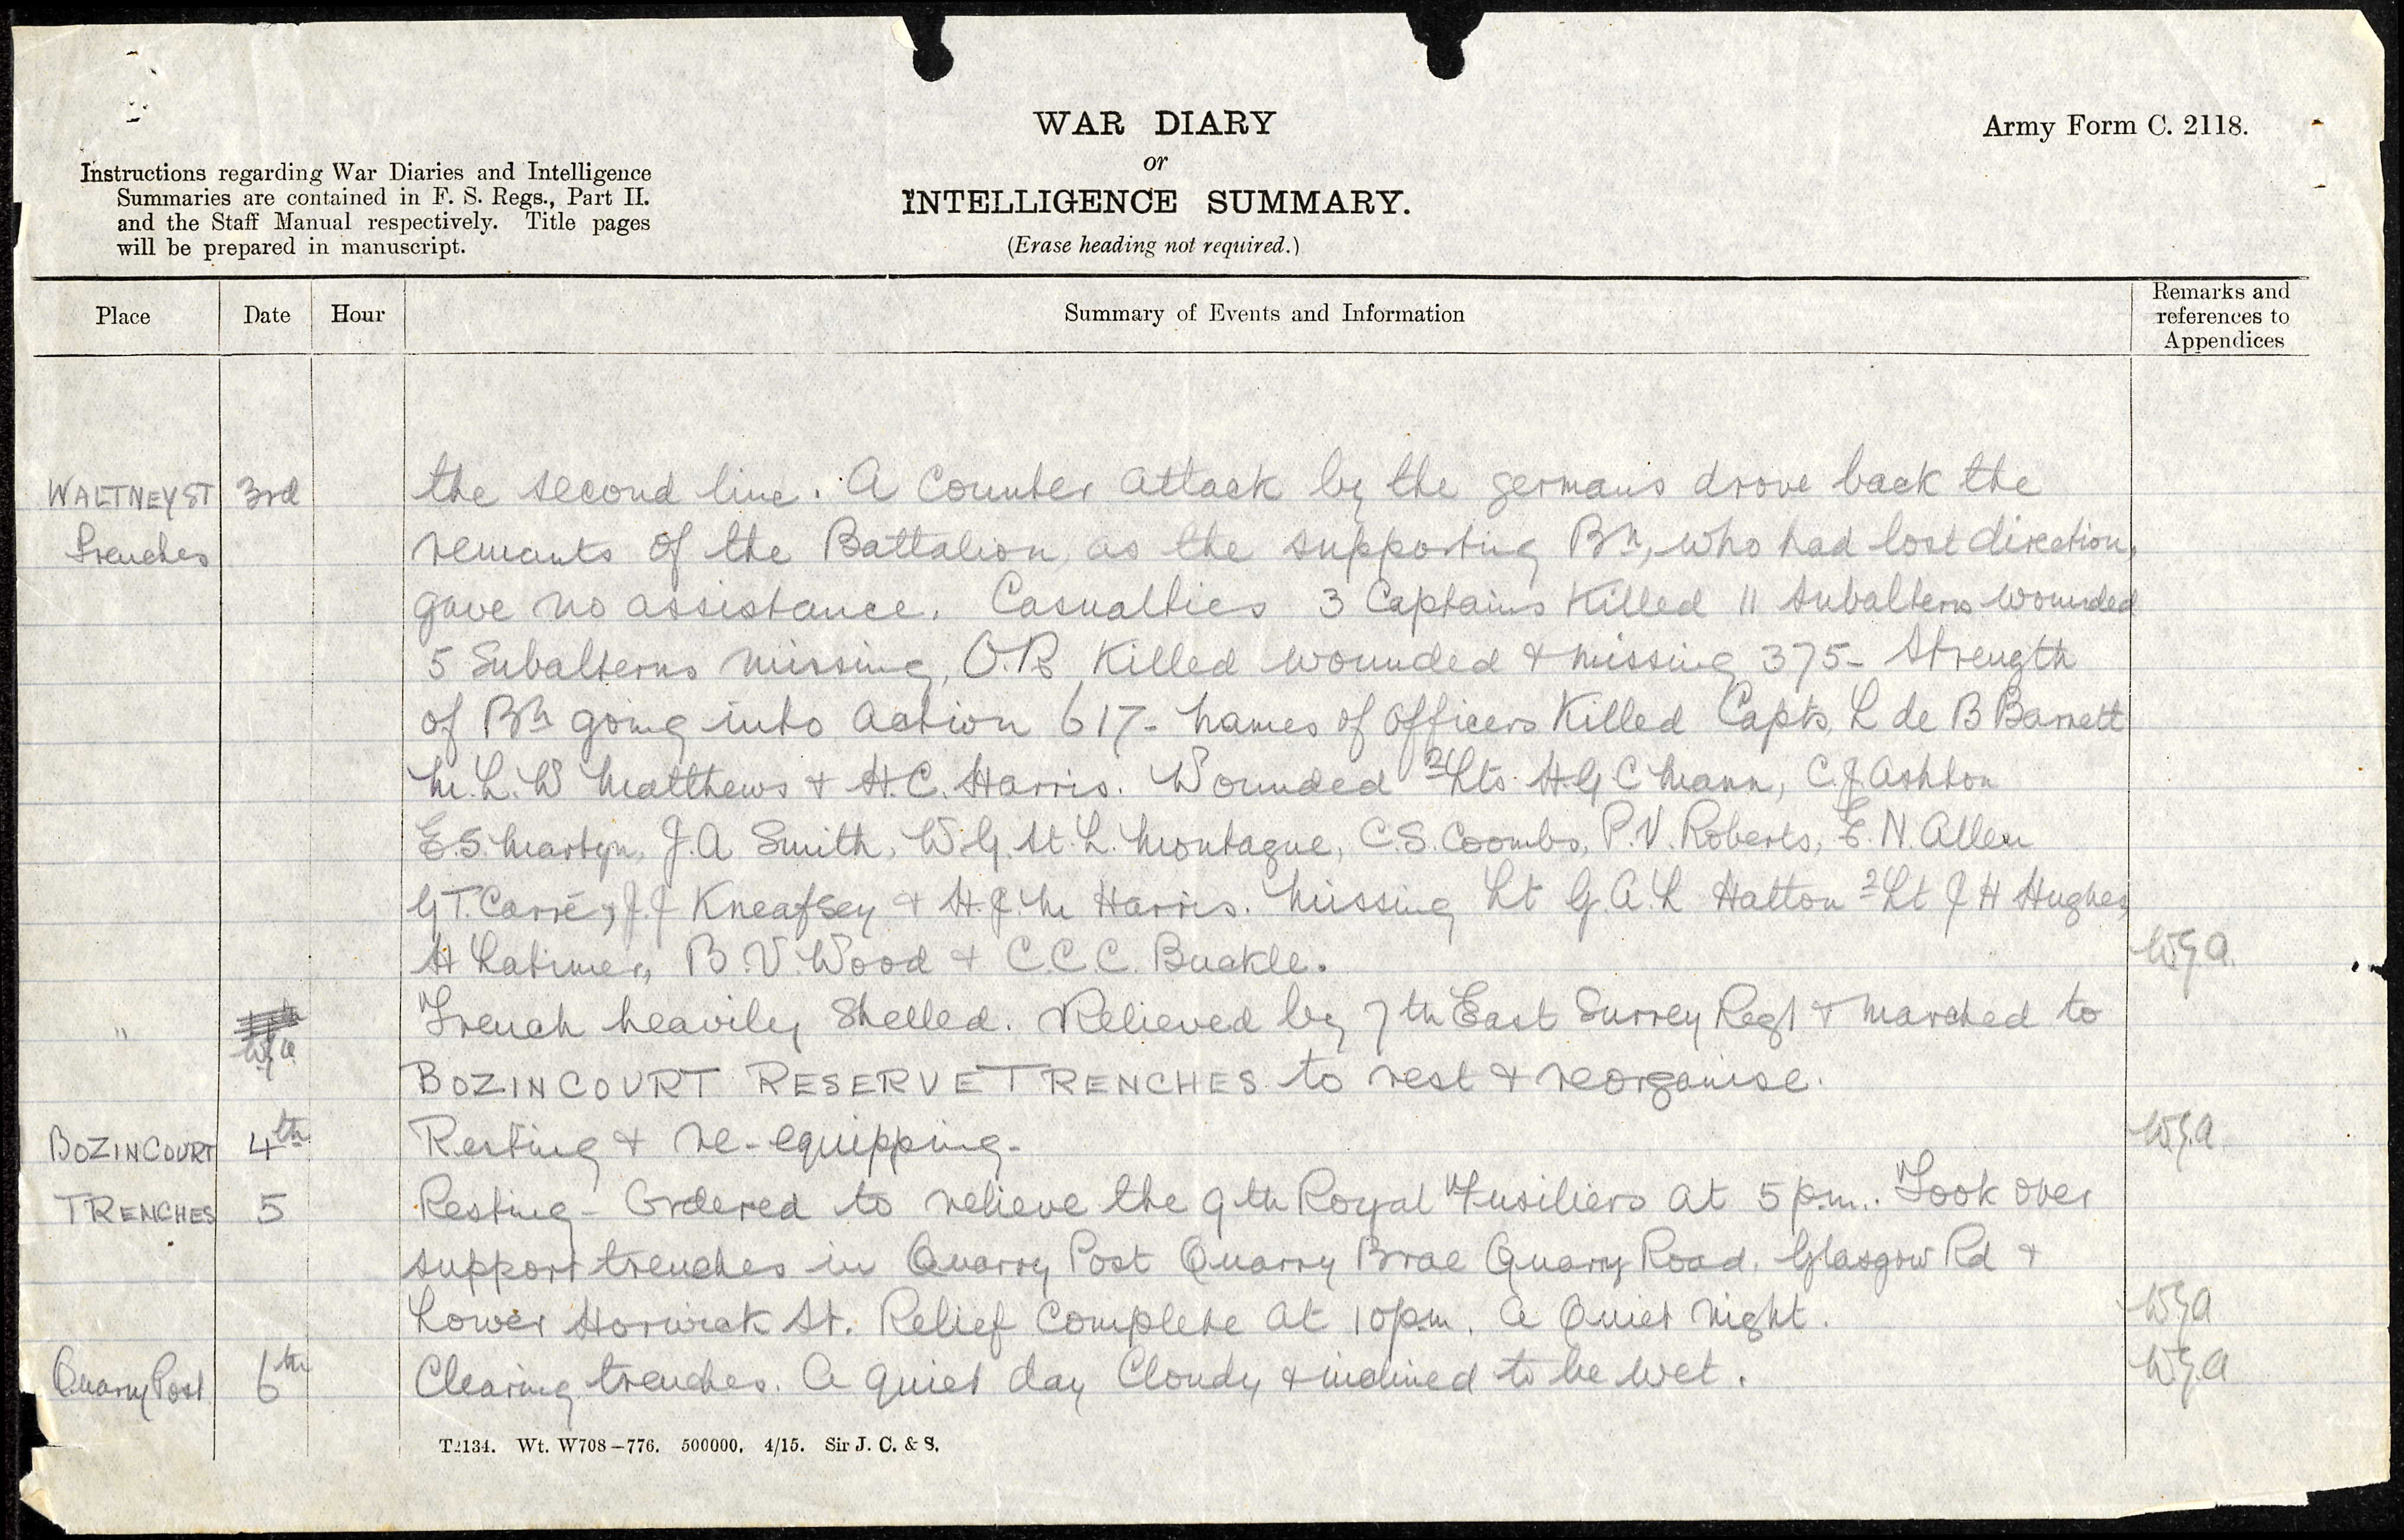 WAR DIARY
or
INTELLIGENCE SUMMARY.
(Erase heading not required.)
Army Form C. 2118.
Instructions regarding War Diaries and Intelligence
Summaries are contained in F. S. Regs., Part II.
and the Staff Manual respectively. Title pages
will be prepared in manuscript.
Place Date Hour Summary of Events and Information Remarks and references to Appendices
WALTNEY ST 3rd the second line. A Counter attack by the germans drove back the
trenches remants of the Battalion, as the supporting Bn, who had lost direction,
gave no assistance. Casualties 3 Captains Killed 11 Subalterns wounded
5 Subalterns missing, O.R. Killed wounded & missing 375- Strength
of Bn going into action 617- Names of Officers Killed Capts. L de B Barnett
M.L.W Matthews & H.C. Harris. Wounded 2Lts H.G C Mann, C.J. Ashton
E.S. Martyn, J.A Smith, W.G. St. L. Montague, C.S. Coombs, P.V. Roberts, E.N. Allen
G T. Carré, J.J Kneafsey & H.J.M Harris. Missing Lt G.A.L Hatton 2Lt J H Hughes
H Latimer, B.V. Wood & C.C.C. Buckle. WGA
" Trench heavily Shelled. Relieved by 7th East Surrey Regt & marched to
WGA BOZINCOURT RESERVE TRENCHES to rest & reorganise.
BOZINCOURT 4th Resting & re-equipping- WGA
TRENCHES 5 Resting- Ordered to relieve the 9th Royal Fusiliers at 5 p.m.. Took over
support trenches in Quarry Post Quarry Brae Quarry Road. Glasgow Rd &
Lower Horwick St. Relief Complete at 10 p.m. A Quiet night. WGA
Quarry Post 6th Clearing trenches. A quiet day Cloudy & inclined to be wet. WGA
T2134. Wt. W708-776. 500000. 4/15. Sir J. C. & S.